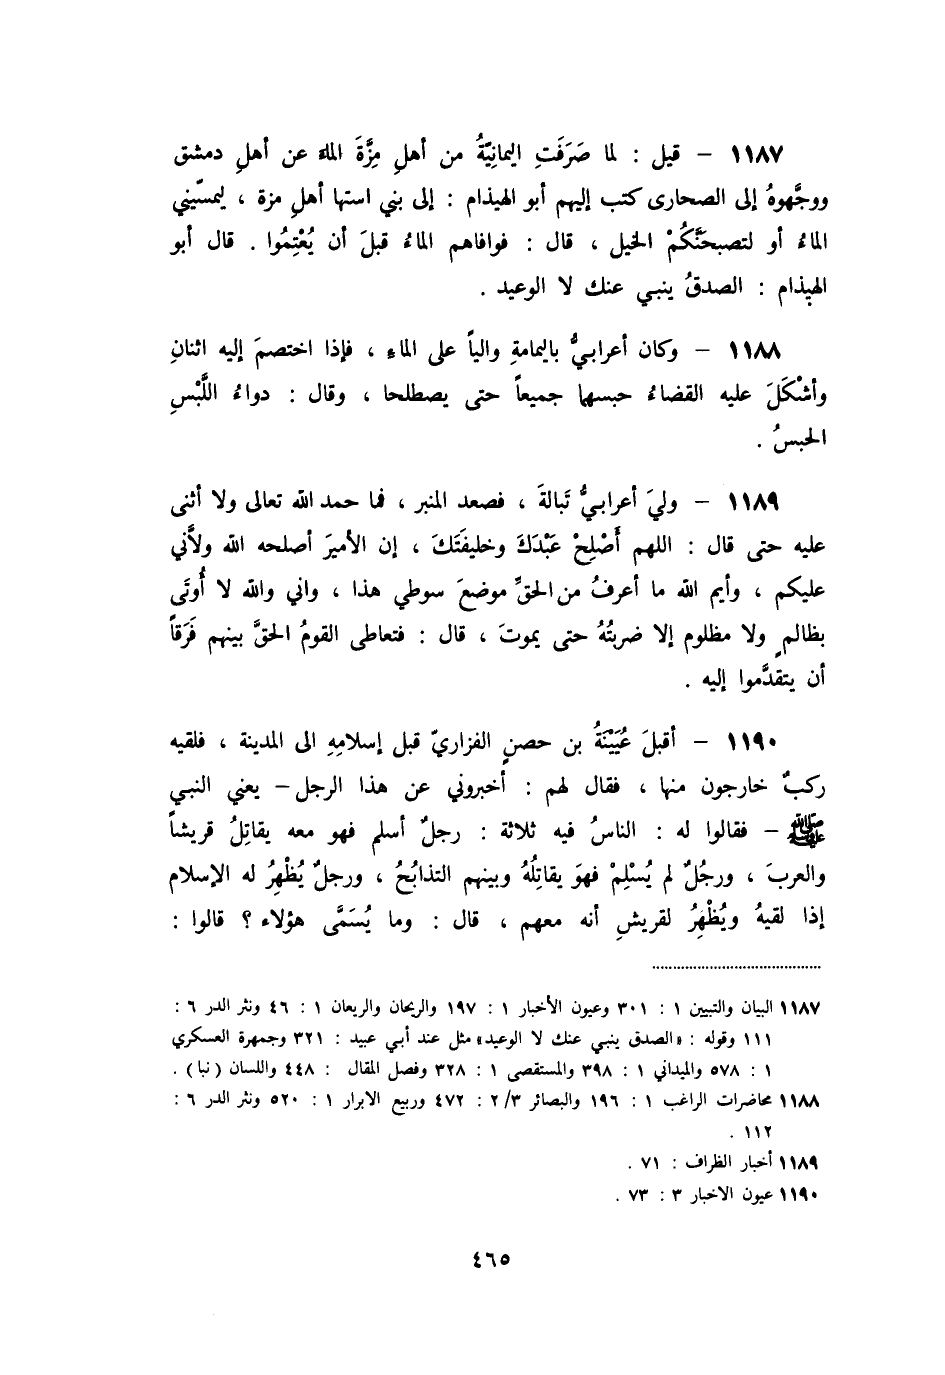 ١١٨٧ – قيل : لما صَرَفَتِ اليمانِيّةُ من أهلِ مِزَّةَ الماءَ عن أهلِ دمشق
ووجَّهوهُ إلى الصحارى كتب إليهم أبو الهيذام : إلى بني استها أهلِ مزة ، ليمسّيني
الماءُ أو لتصبحَنَّكُمْ الخيل ، قال : فوافاهم الماءُ قبلَ أن يُعْتِمُوا . قال أبو
الهيذام : الصدقُ ينبي عنك لا الوعيد .
١١٨٨ – وكان أعرابيٌّ باليمامةِ والياً على الماءِ ، فإذا اختصمَ إليه اثنانِ
وأشْكَلَ عليه القضاءُ حبسهما جميعاً حتى يصطلحا ، وقال : دواءُ اللَّبْسِ
الحبسُ .
١١٨٩ – وليَ أعرابيٌّ تَبالةَ ، فصعد المنبر ، فما حمد الله تعالى ولا أثنى
عليه حتى قال : اللهم أَصْلِحْ عَبْدَكَ وخليفَتَكَ ، إن الأميرَ أصلحه الله ولاَّني
عليكم ، وأيم الله ما أعرفُ من الحقِّ موضعَ سوطي هذا ، واني والله لا أُوتَى
بظالمٍ ولا مظلوم إلا ضربتُهُ حتى يموتَ ، قال : فتعاطى القومُ الحقَّ بينهم فَرَقاً
أن يتقدَّموا إليه .
١١٩٠ – أقبلَ عُيَيْنَةُ بن حصنٍ الفزاريّ قبل إسلامِهِ الى المدينة ، فلقيه
ركبٌ خارجون منها ، فقال لهم : أخبروني عن هذا الرجل – يعني النبي
ﷺ – فقالوا له : الناسُ فيه ثلاثة : رجلٌ أسلم فهو معه يقاتِلُ قريشاً
والعربَ ، ورجُلٌ لم يُسْلِمْ فهوَ يقاتِلُهُ وبينهم التذابُحُ ، ورجلٌ يُظْهِرُ له الإسلام
إذا لقيهُ ويُظْهِرُ لقريشِ أنه معهم ، قال : وما يُسَمَّى هؤلاء ؟ قالوا :
١١٨٧ البيان والتبيين ١ : ٣٠١ وعيون الأخبار ١ : ١٩٧ والريحان والريعان ١ : ٤٦ ونثر الدر ٦ :
١١١ وقوله : «الصدق ينبي عنك لا الوعيد» مثل عند أبي عبيد : ٣٢١ وجمهرة العسكري
١ : ٥٧٨ والميداني ١ : ٣٩٨ والمستقصى ١ : ٣٢٨ وفصل المقال : ٤٤٨ واللسان ( نبا ) .
١١٨٨ محاضرات الراغب ١ : ١٩٦ والبصائر ٣/ ٢ : ٤٧٢ وربيع الابرار ١ : ٥٢٠ ونثر الدر ٦ :
١١٢ .
١١٨٩ أخبار الظراف : ٧١ .
١١٩٠ عيون الاخبار ٣ : ٧٣ .
٤٦٥